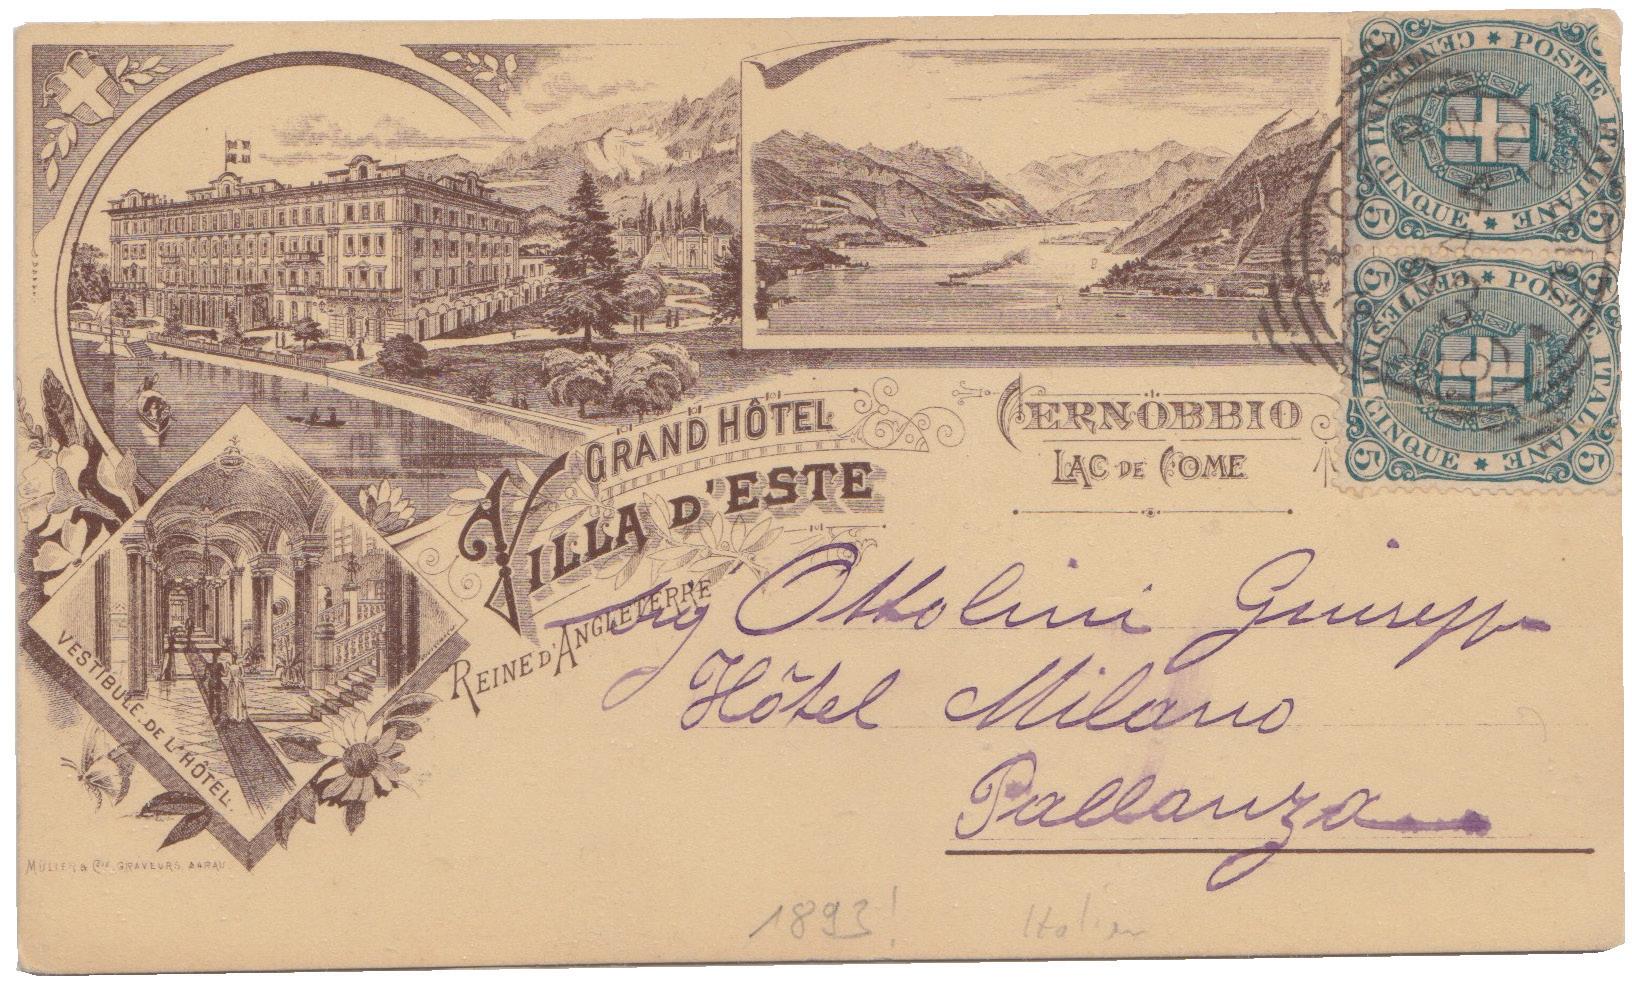 POSTE ITALIANE
CENTESIMI CINQUE
5 5 5 5
POSTE ITALIANE
CENTESIMI CINQUE
5 5 5 5
GRAND HÔTEL
VILLA D'ESTE
REINE D'ANGLETERRE
CERNOBBIO
LAC DE COME
Sig Ottolini Giusepp
Hôtel Milano
Pallanza
VESTIBULE DE L'HÔTEL.
MÜLLER & CIE GRAVEURS, AARAU
1893!
Italien